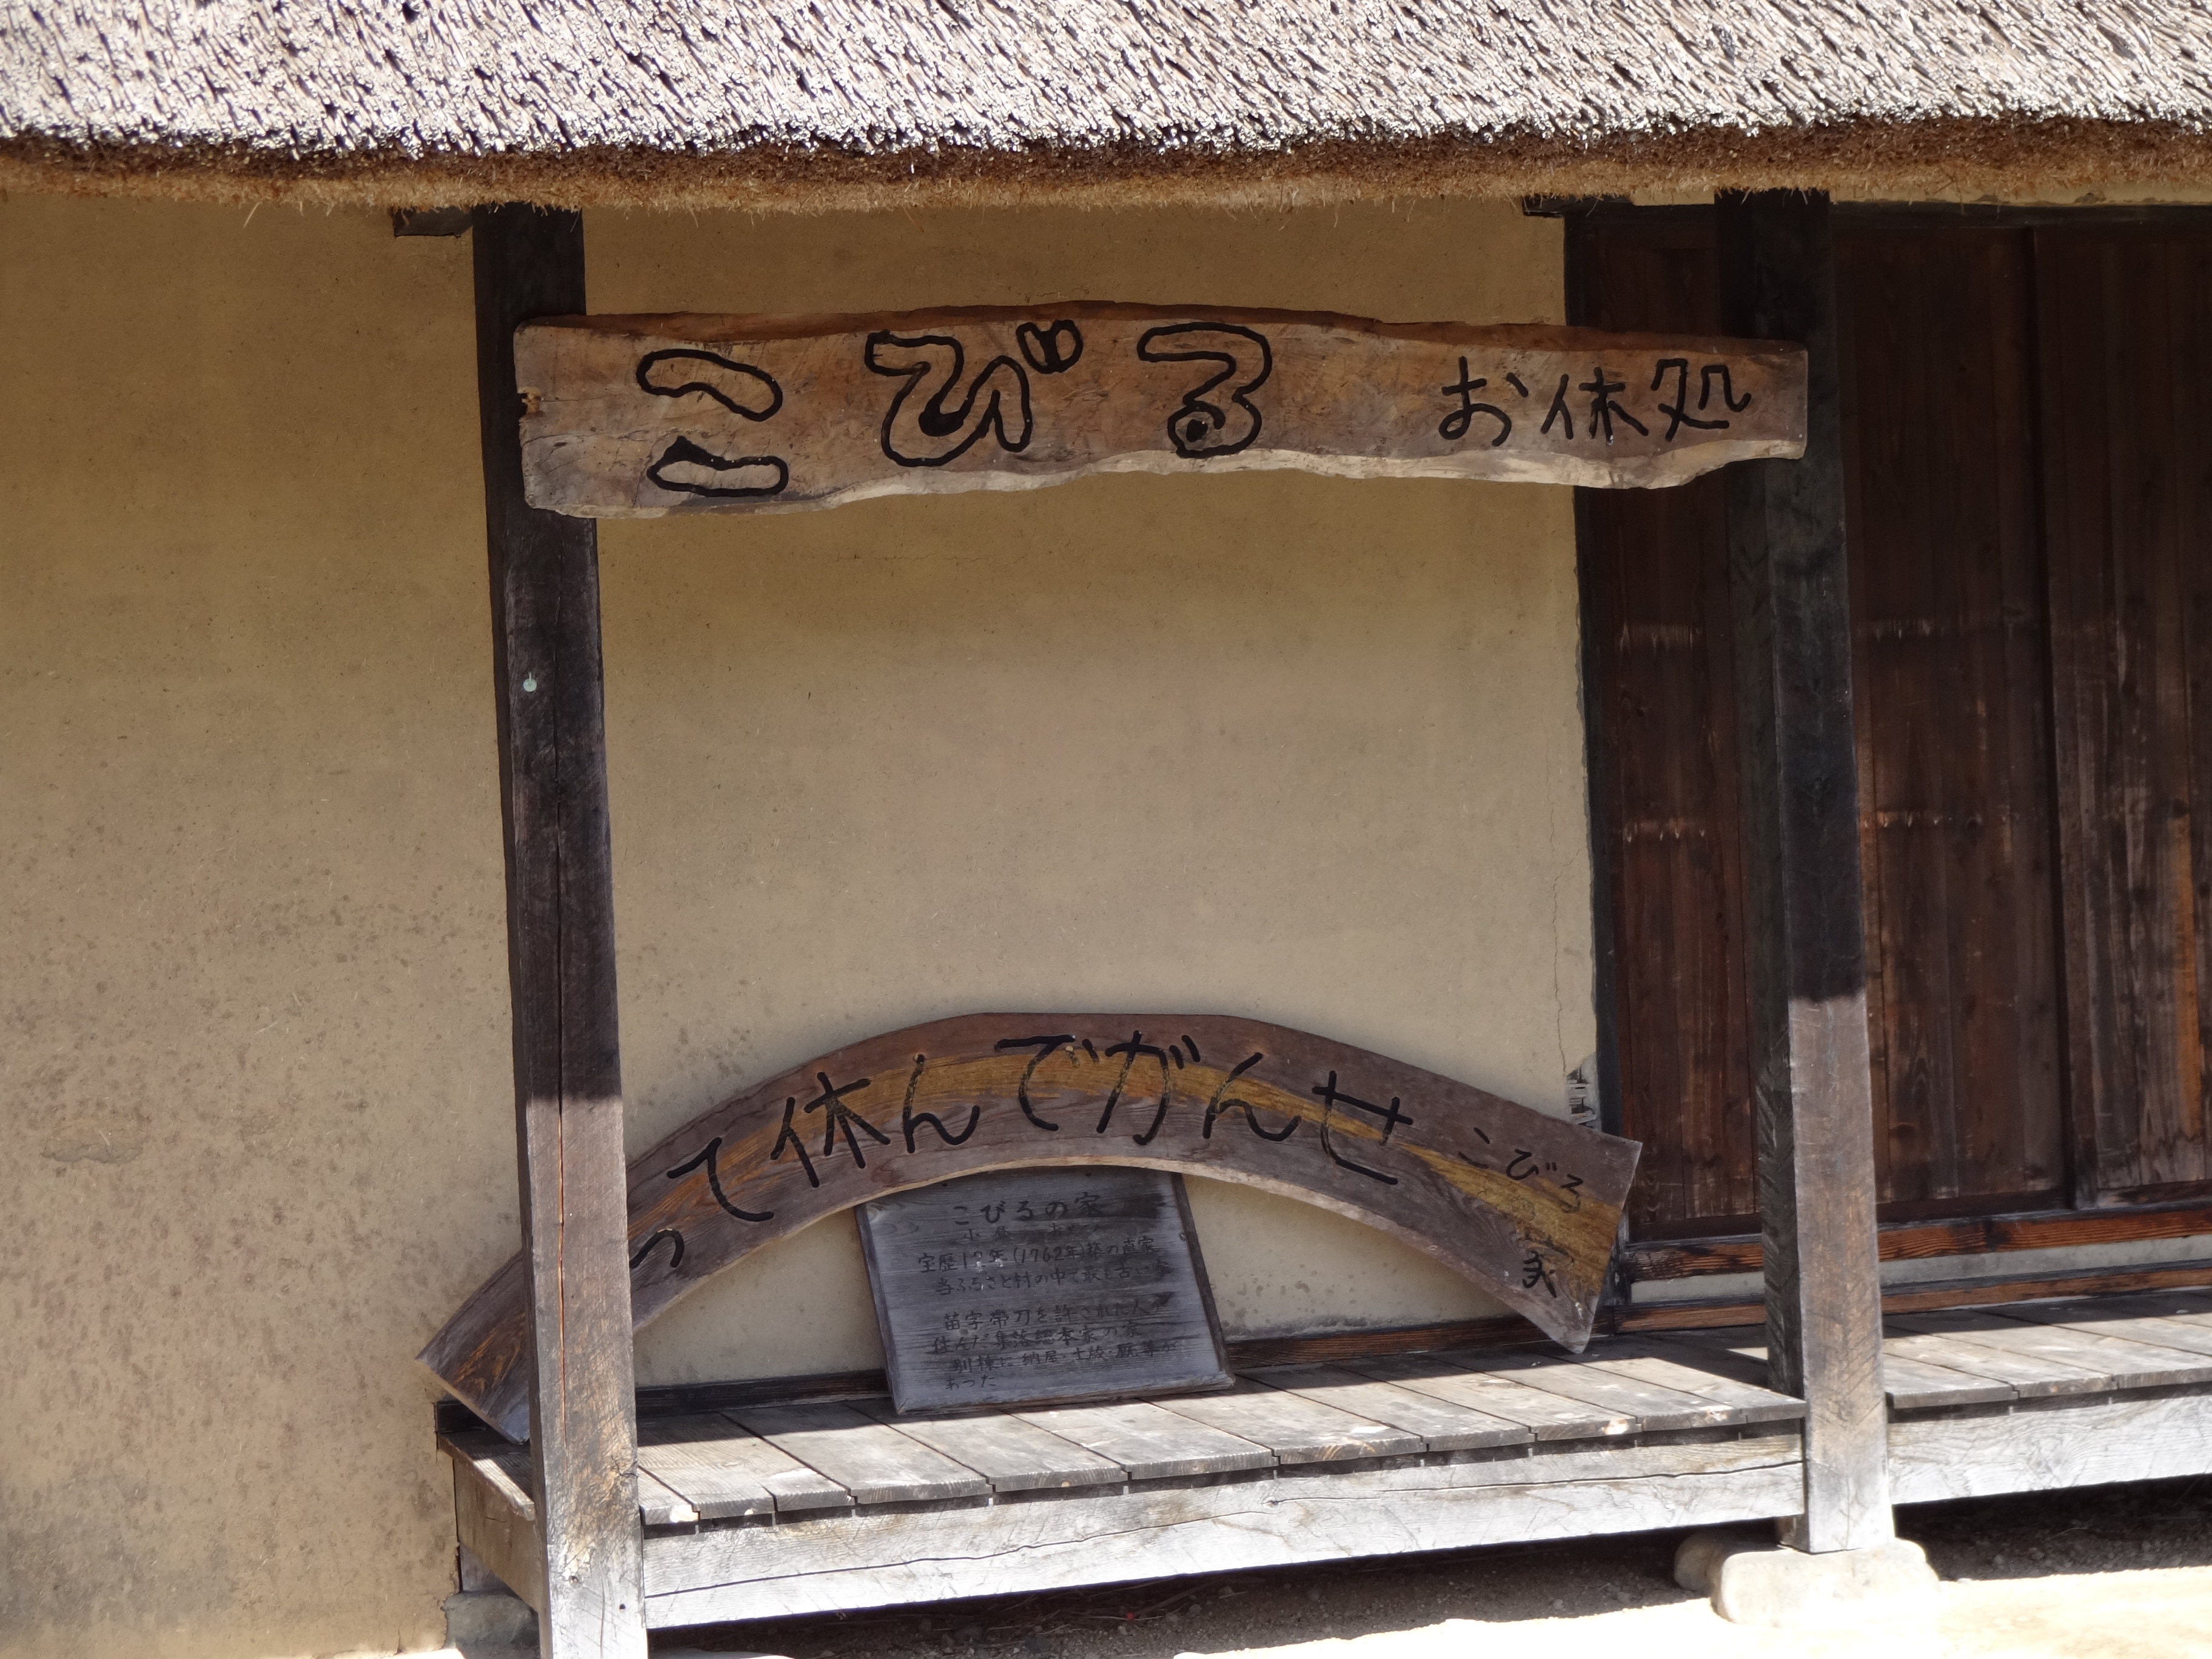 こびる お休処
って休んでがんせ こびる
こびるの家
宝歴12年(1762年)築の直家
当ふるさと村の中で最も古い家
苗字帯刀を許された人が
住んだ集落総本家の家
別棟に納屋・土蔵・厩・等が
あった